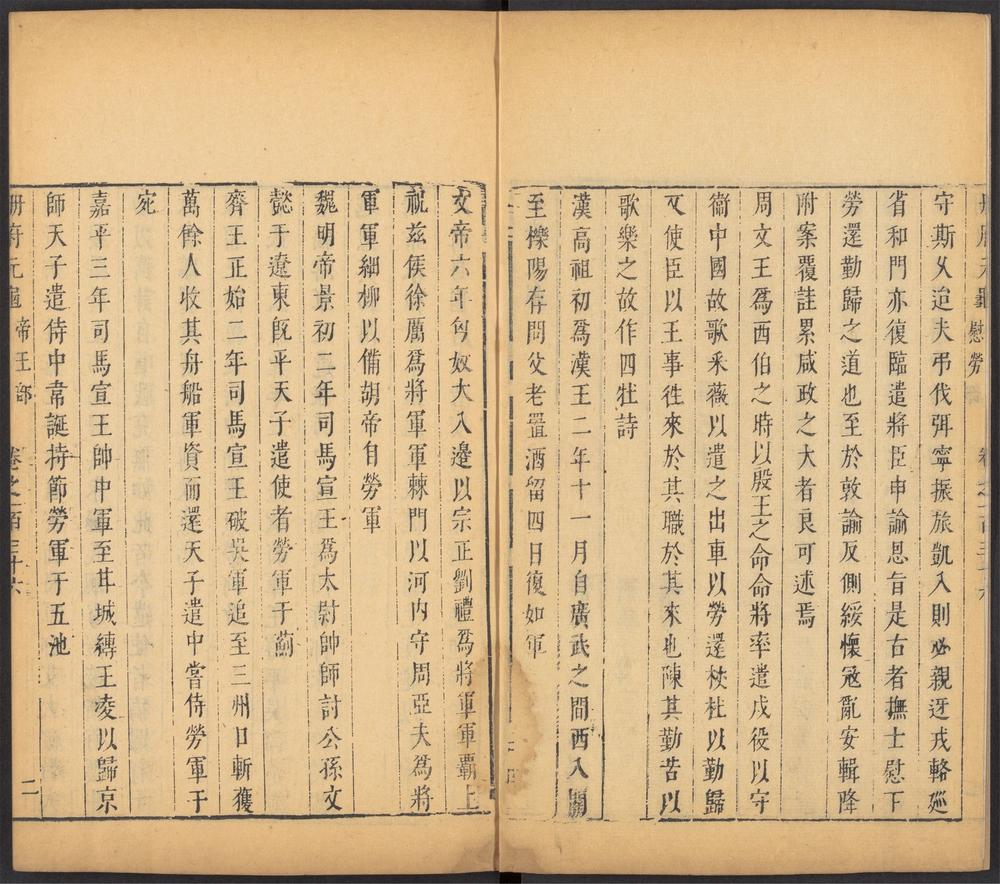 冊府元龜慰勞 卷之一百三十六
守斯乂迨夫弔伐弭寧振旅凱入則必親迓戎輅廵
省和門亦復臨遣將臣申諭恩旨是古者撫士慰下
勞還勤歸之道也至於敦諭反側綏懷冦亂安輯降
附案覆詿累咸政之大者良可述焉
周文王爲西伯之時以殷王之命命將率遣戍役以守
衞中國故歌采薇以遣之出車以勞還杕杜以勤歸
又使臣以王事徃來於其職於其來也陳其勤苦以
歌樂之故作四牡詩
漢高祖初爲漢王二年十一月自廣武之間西入關
至櫟陽存問父老置酒留四日復如軍
文帝六年匈奴大入邊以宗正劉禮爲將軍軍霸上
祝茲侯徐厲爲將軍軍棘門以河内守周亞夫爲將
軍軍細柳以備胡帝自勞軍
魏明帝景初二年司馬宣王爲太尉帥師討公孫文
懿于遼東旣平天子遣使者勞軍于薊
齊王正始二年司馬宣王破吳軍追至三州口斬獲
萬餘人收其舟船軍資而還天子遣中嘗侍勞軍于
宛
嘉平三年司馬宣王帥中軍至甘城縛王凌以歸京
師天子遣侍中韋誕持節勞軍于五池
冊府元龜 帝王部 卷之一百三十六 二